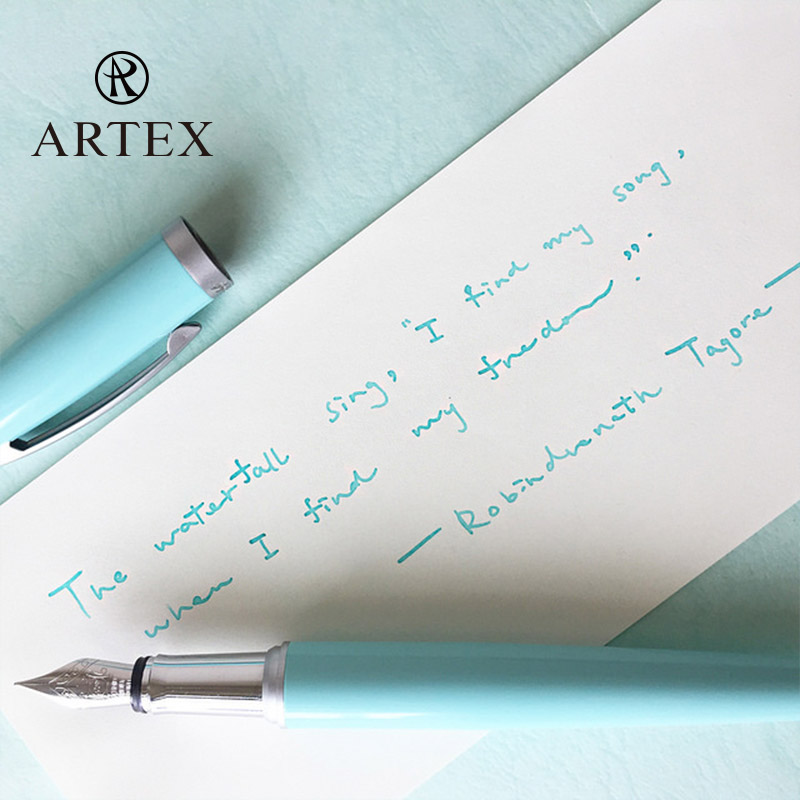 ARTEX
The waterfall sing, "I find my song,
when I find my freedom".
— Robindranath Tagore —